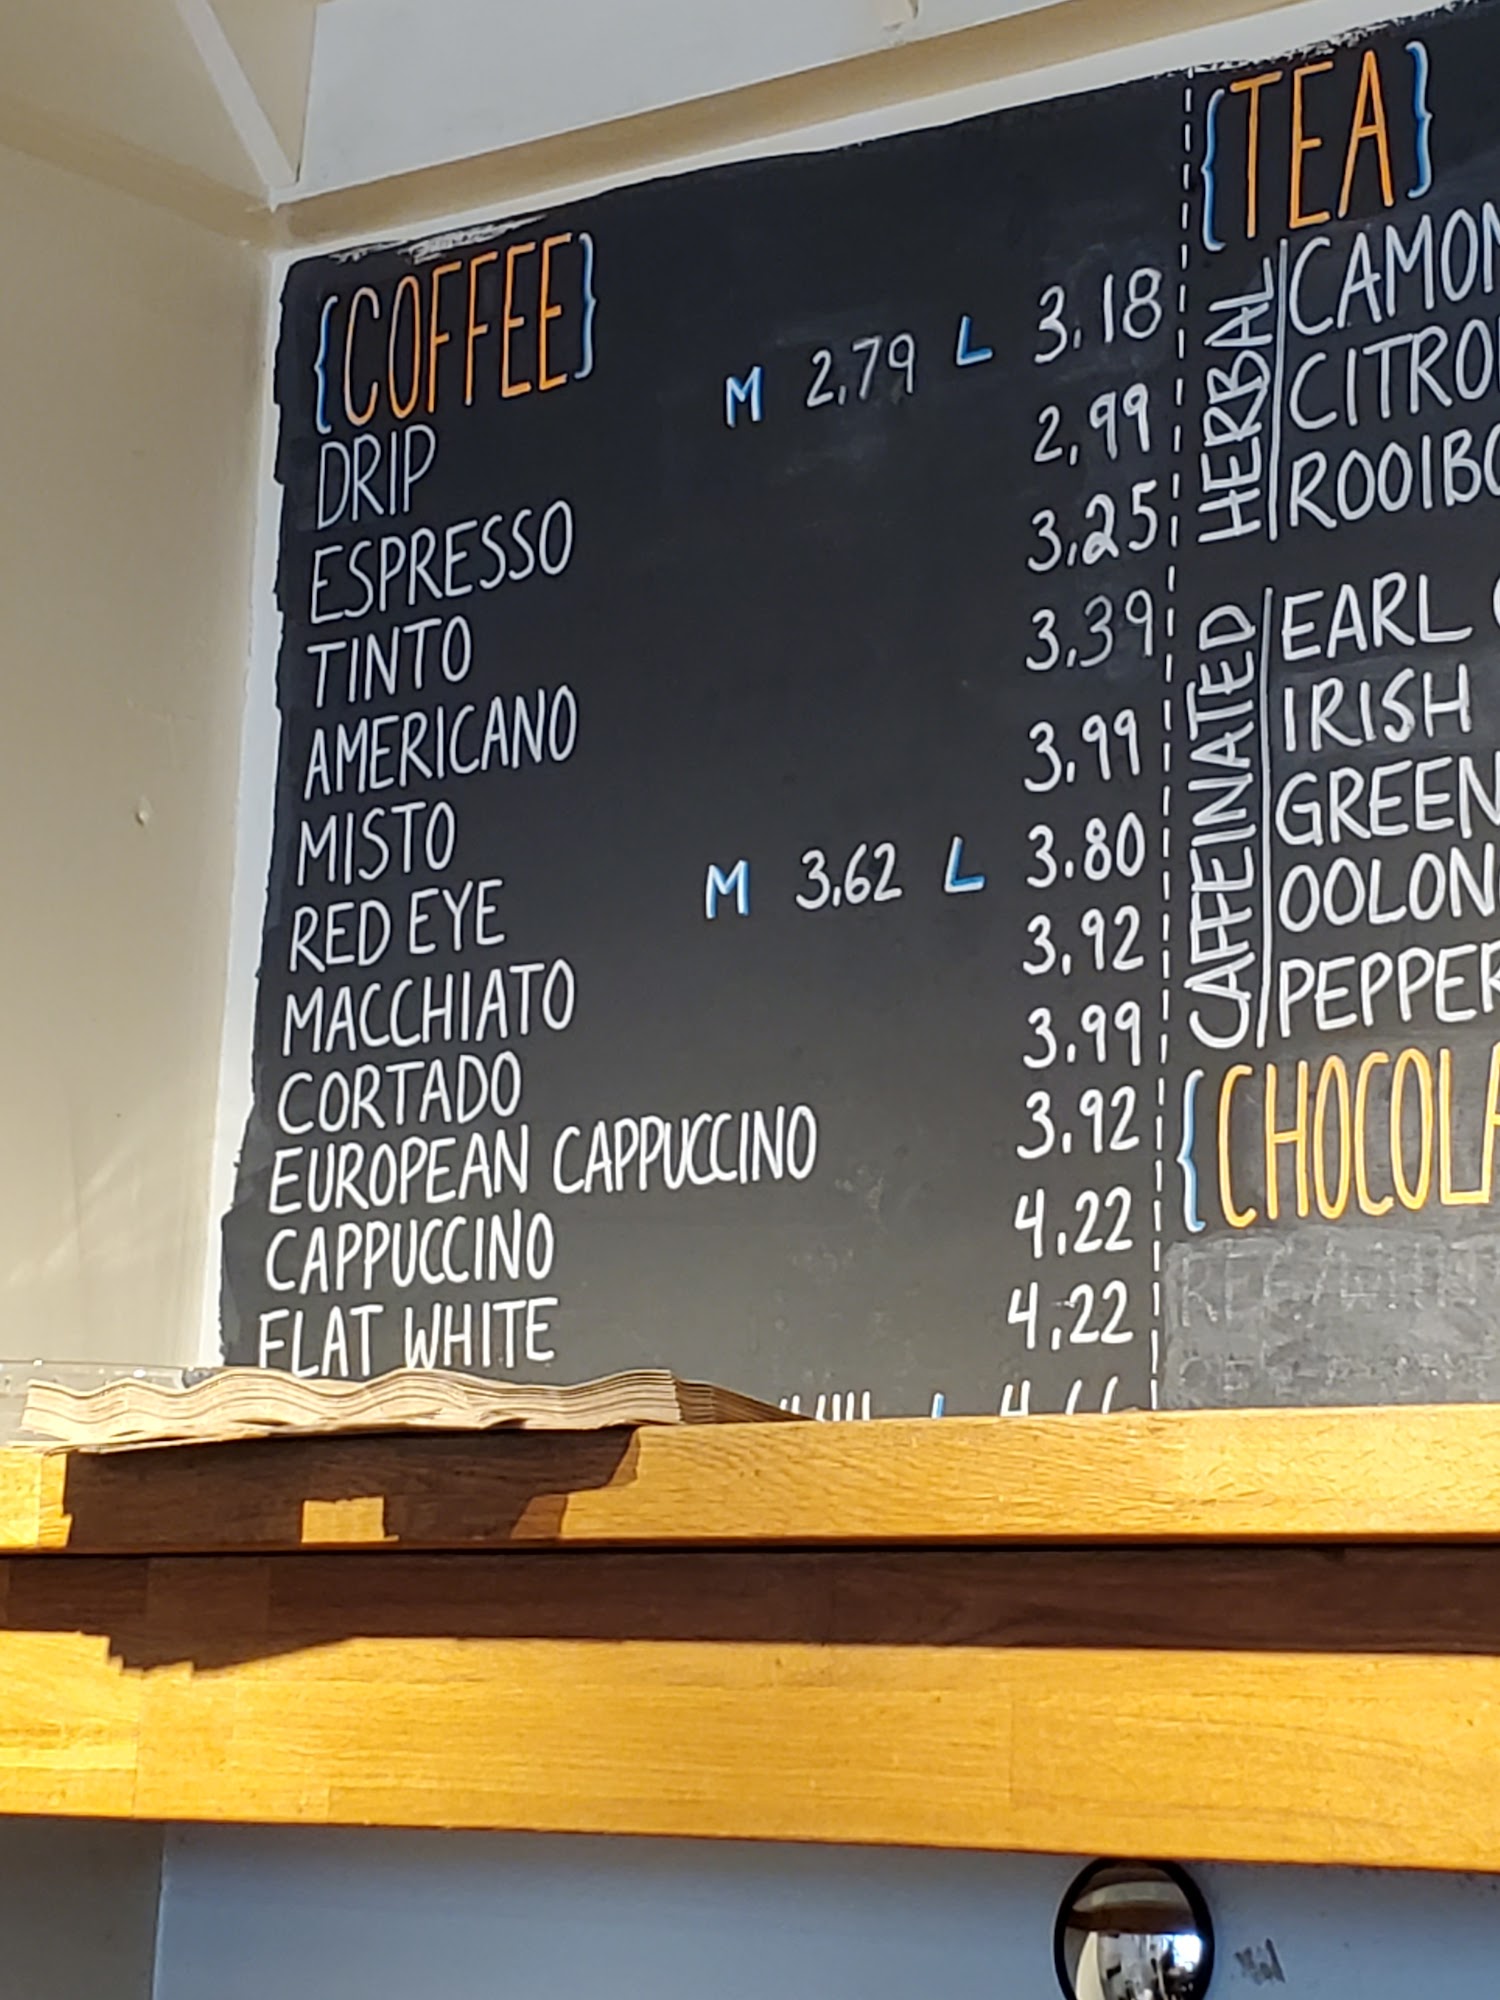 {COFFEE}
DRIP M 2.79 L 3.18
ESPRESSO 2.99
TINTO 3.25
AMERICANO 3.39
MISTO 3.99
RED EYE M 3.62 L 3.80
MACCHIATO 3.92
CORTADO 3.99
EUROPEAN CAPPUCCINO 3.92
CAPPUCCINO 4.22
FLAT WHITE 4.22
{TEA}
HERBAL
CAMOM
CITRO
ROOIBO
CAFFEINATED
EARL
IRISH
GREEN
OOLON
PEPPER
{CHOCOLA